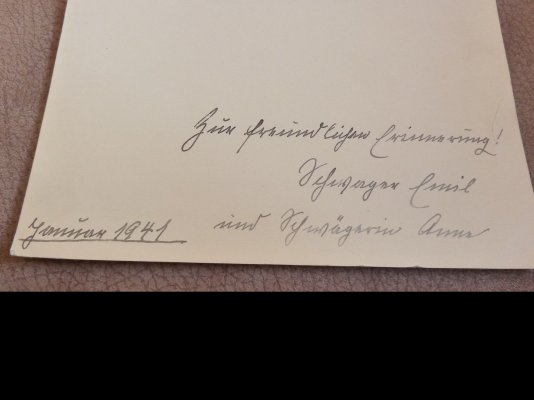 Zur freundlichen Erinnerung!
Schwager Emil
und Schwägerin Anne
Januar 1941